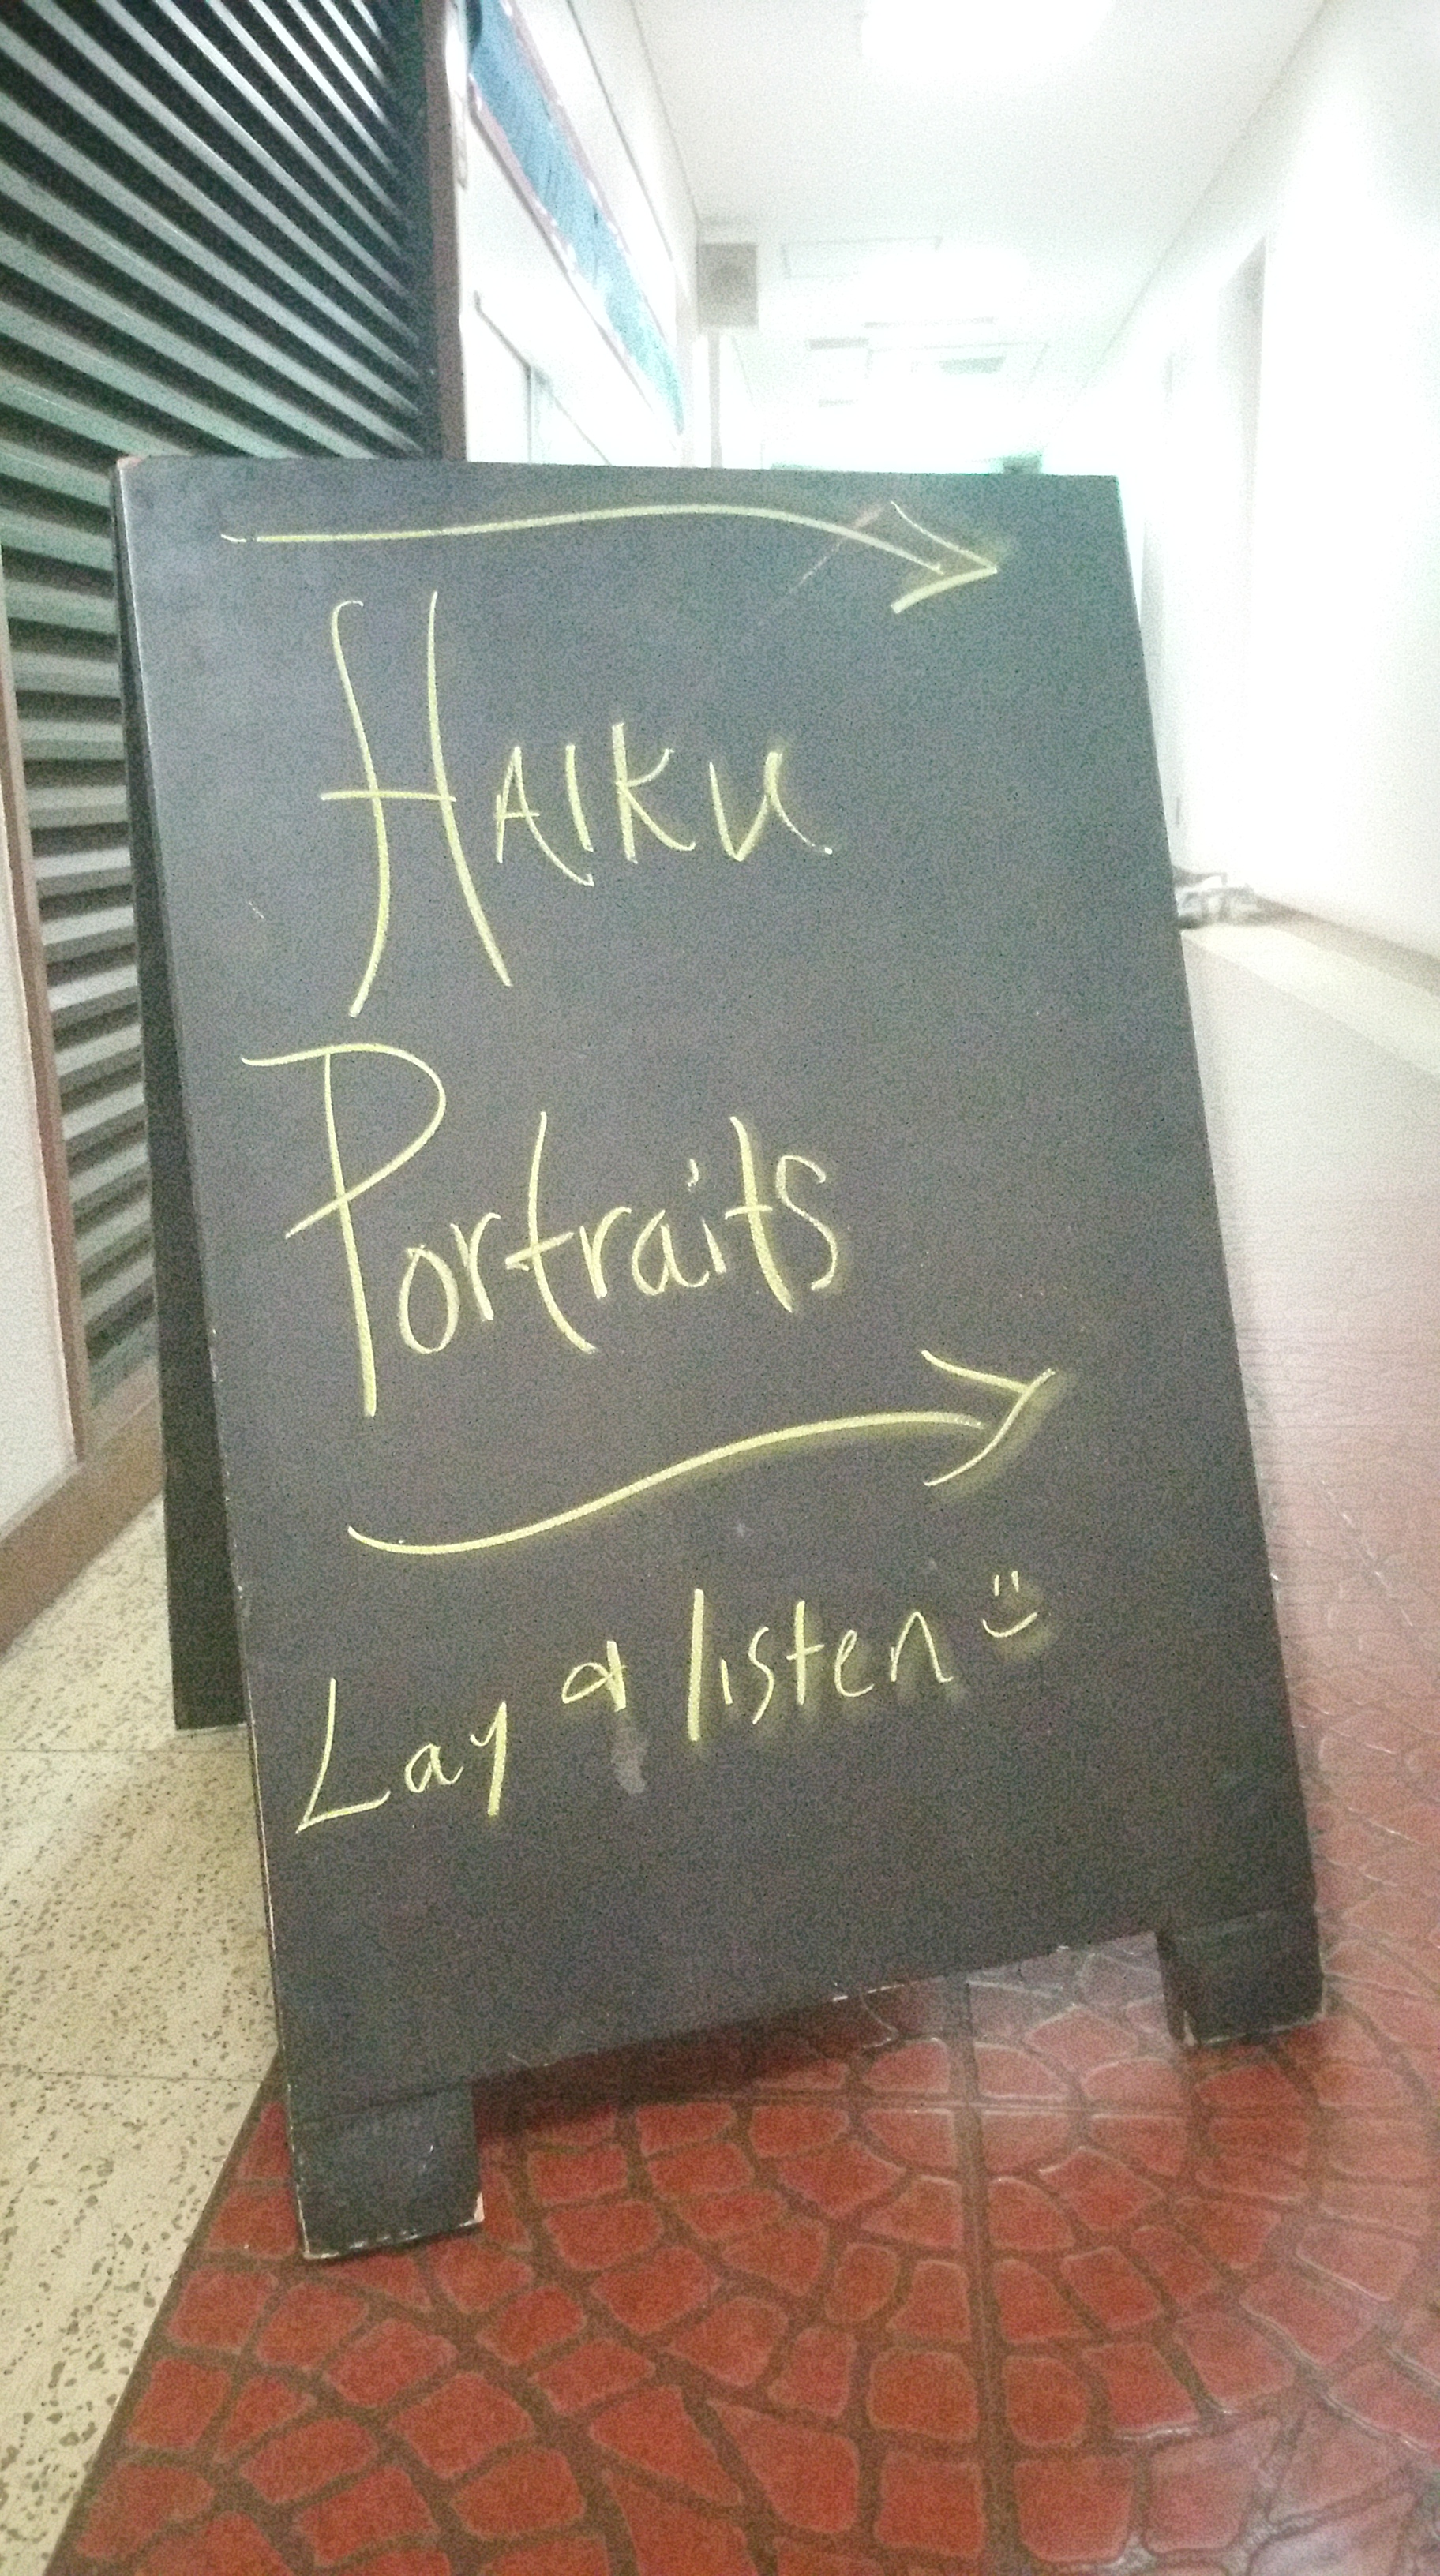 HAIKU
Portraits
Lay & listen